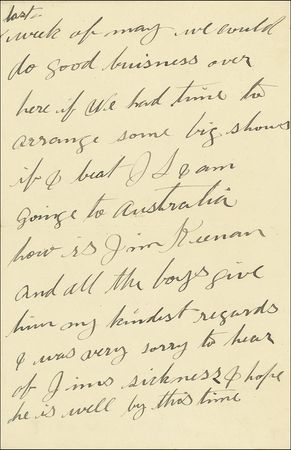 last
week of may we could
do good buisness over
here if we had time to
arrange some big shows
if I beat J L I am
goinge to Australia
how is Jim Keenan
and all the boys give
him my kindest regards
I was very sorry to hear
of Jims sickness I hope
he is well by this time